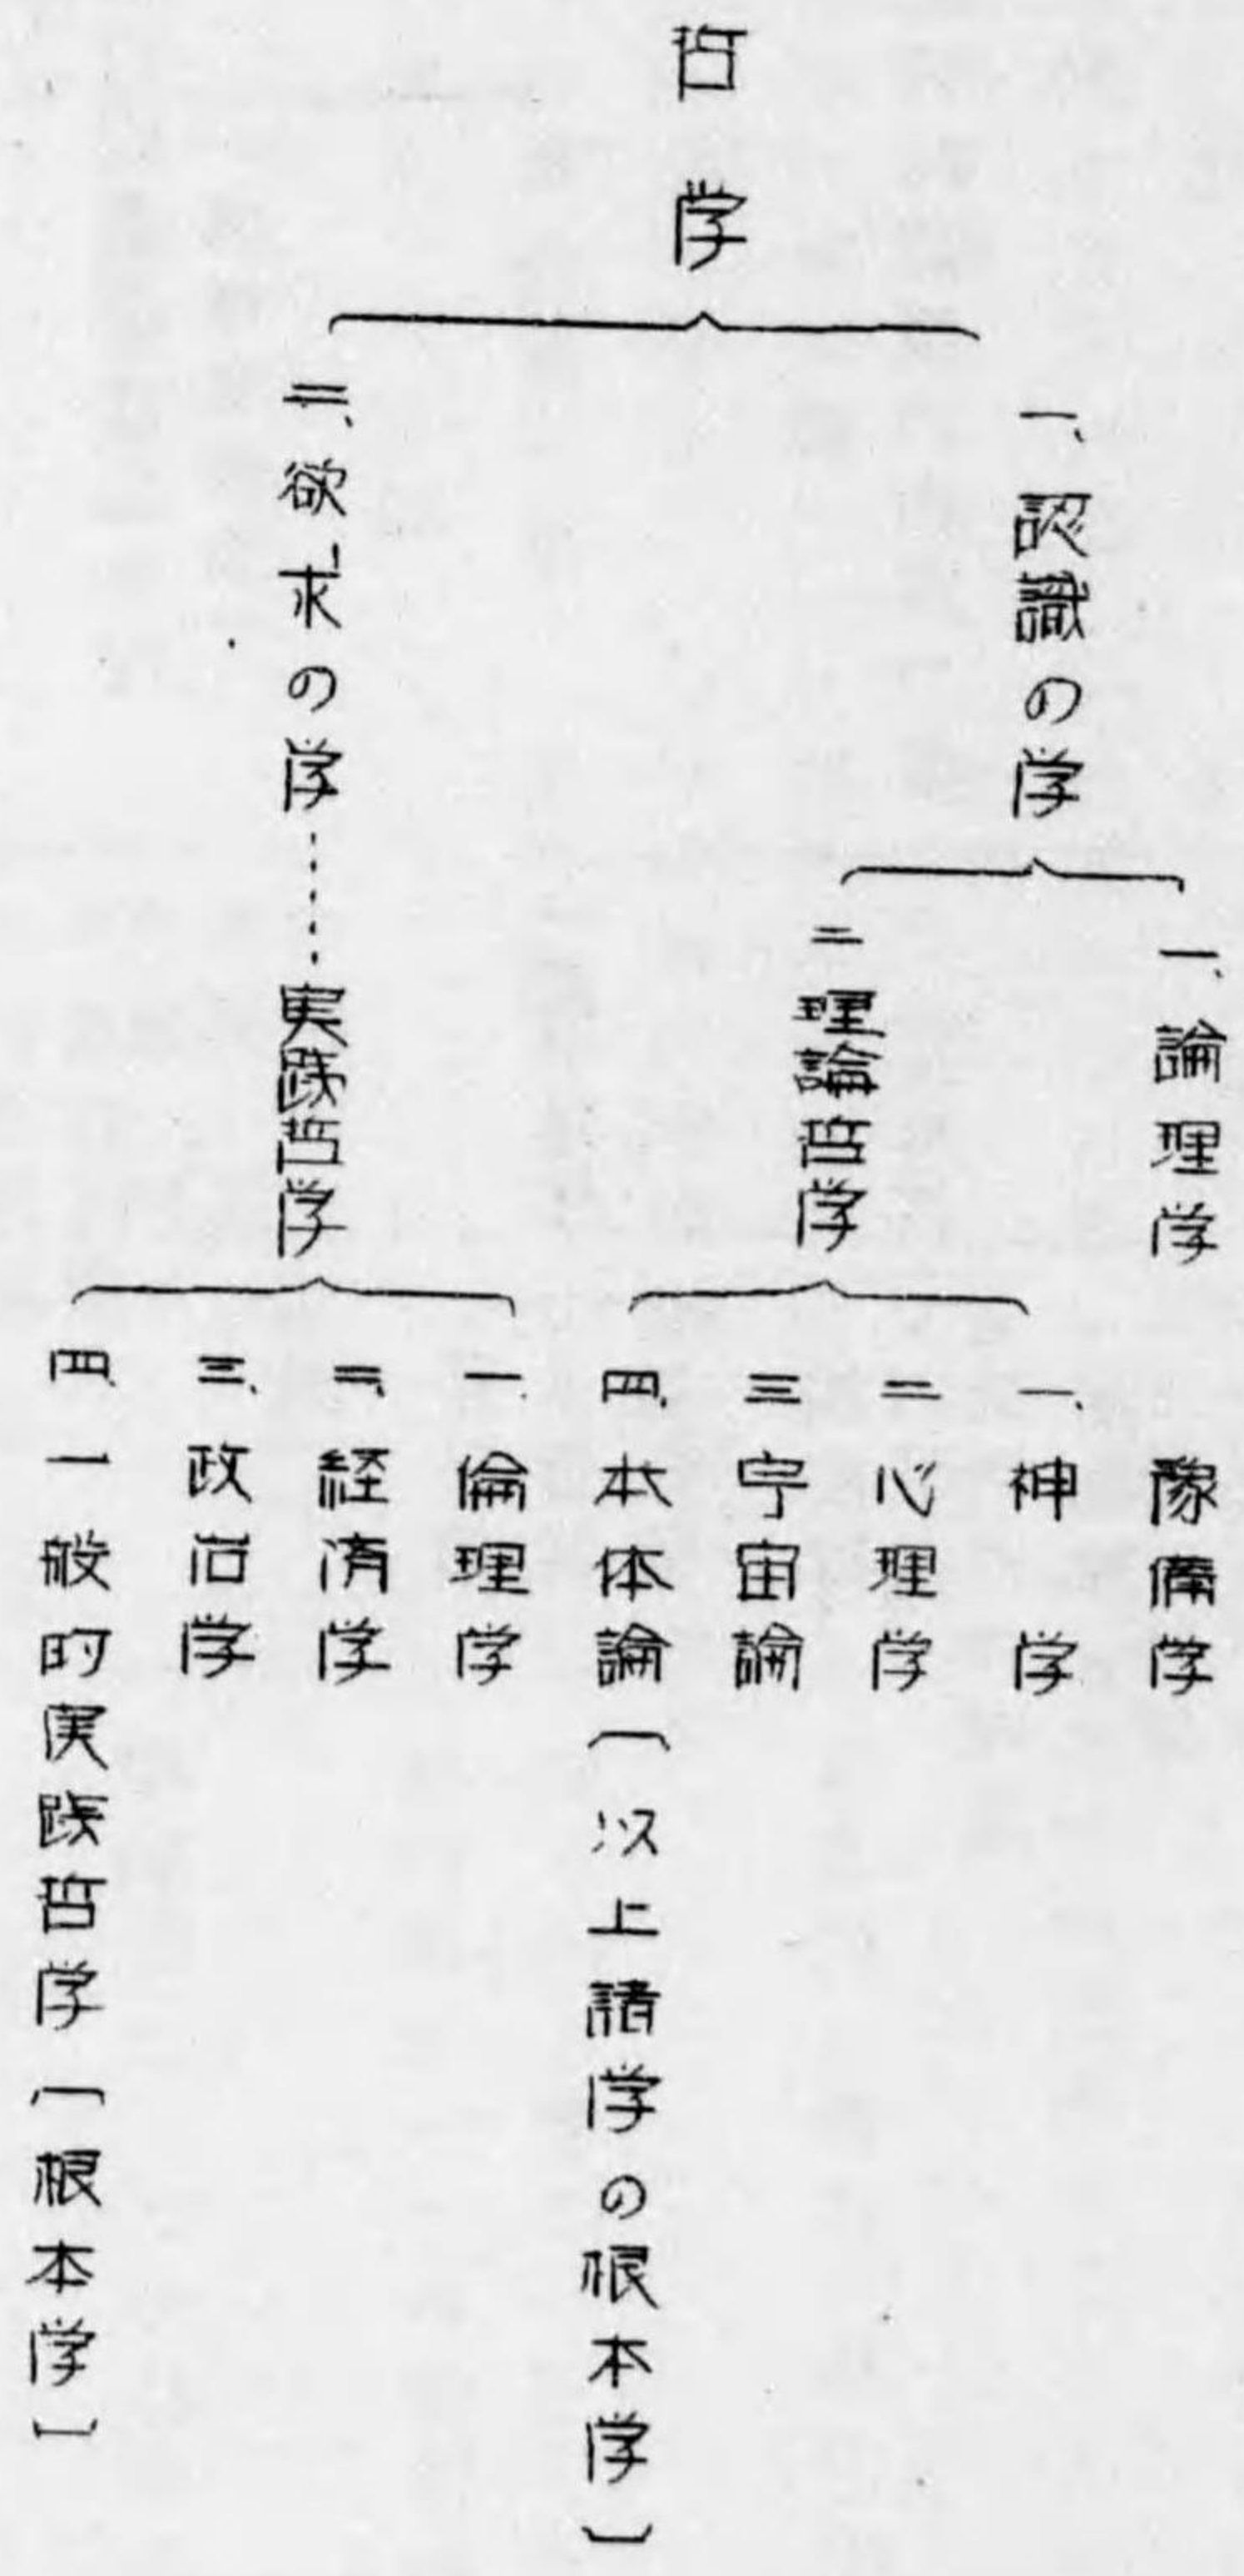 哲学
一、認識の学
一、論理学
豫備学
二 理論哲学
一、神学
二 心理学
三 宇宙論
四、本体論〔以上諸学の根本学〕
二、欲求の学……実践哲学
一、倫理学
二、経済学
三、政治学
四、一般的実践哲学〔根本学〕